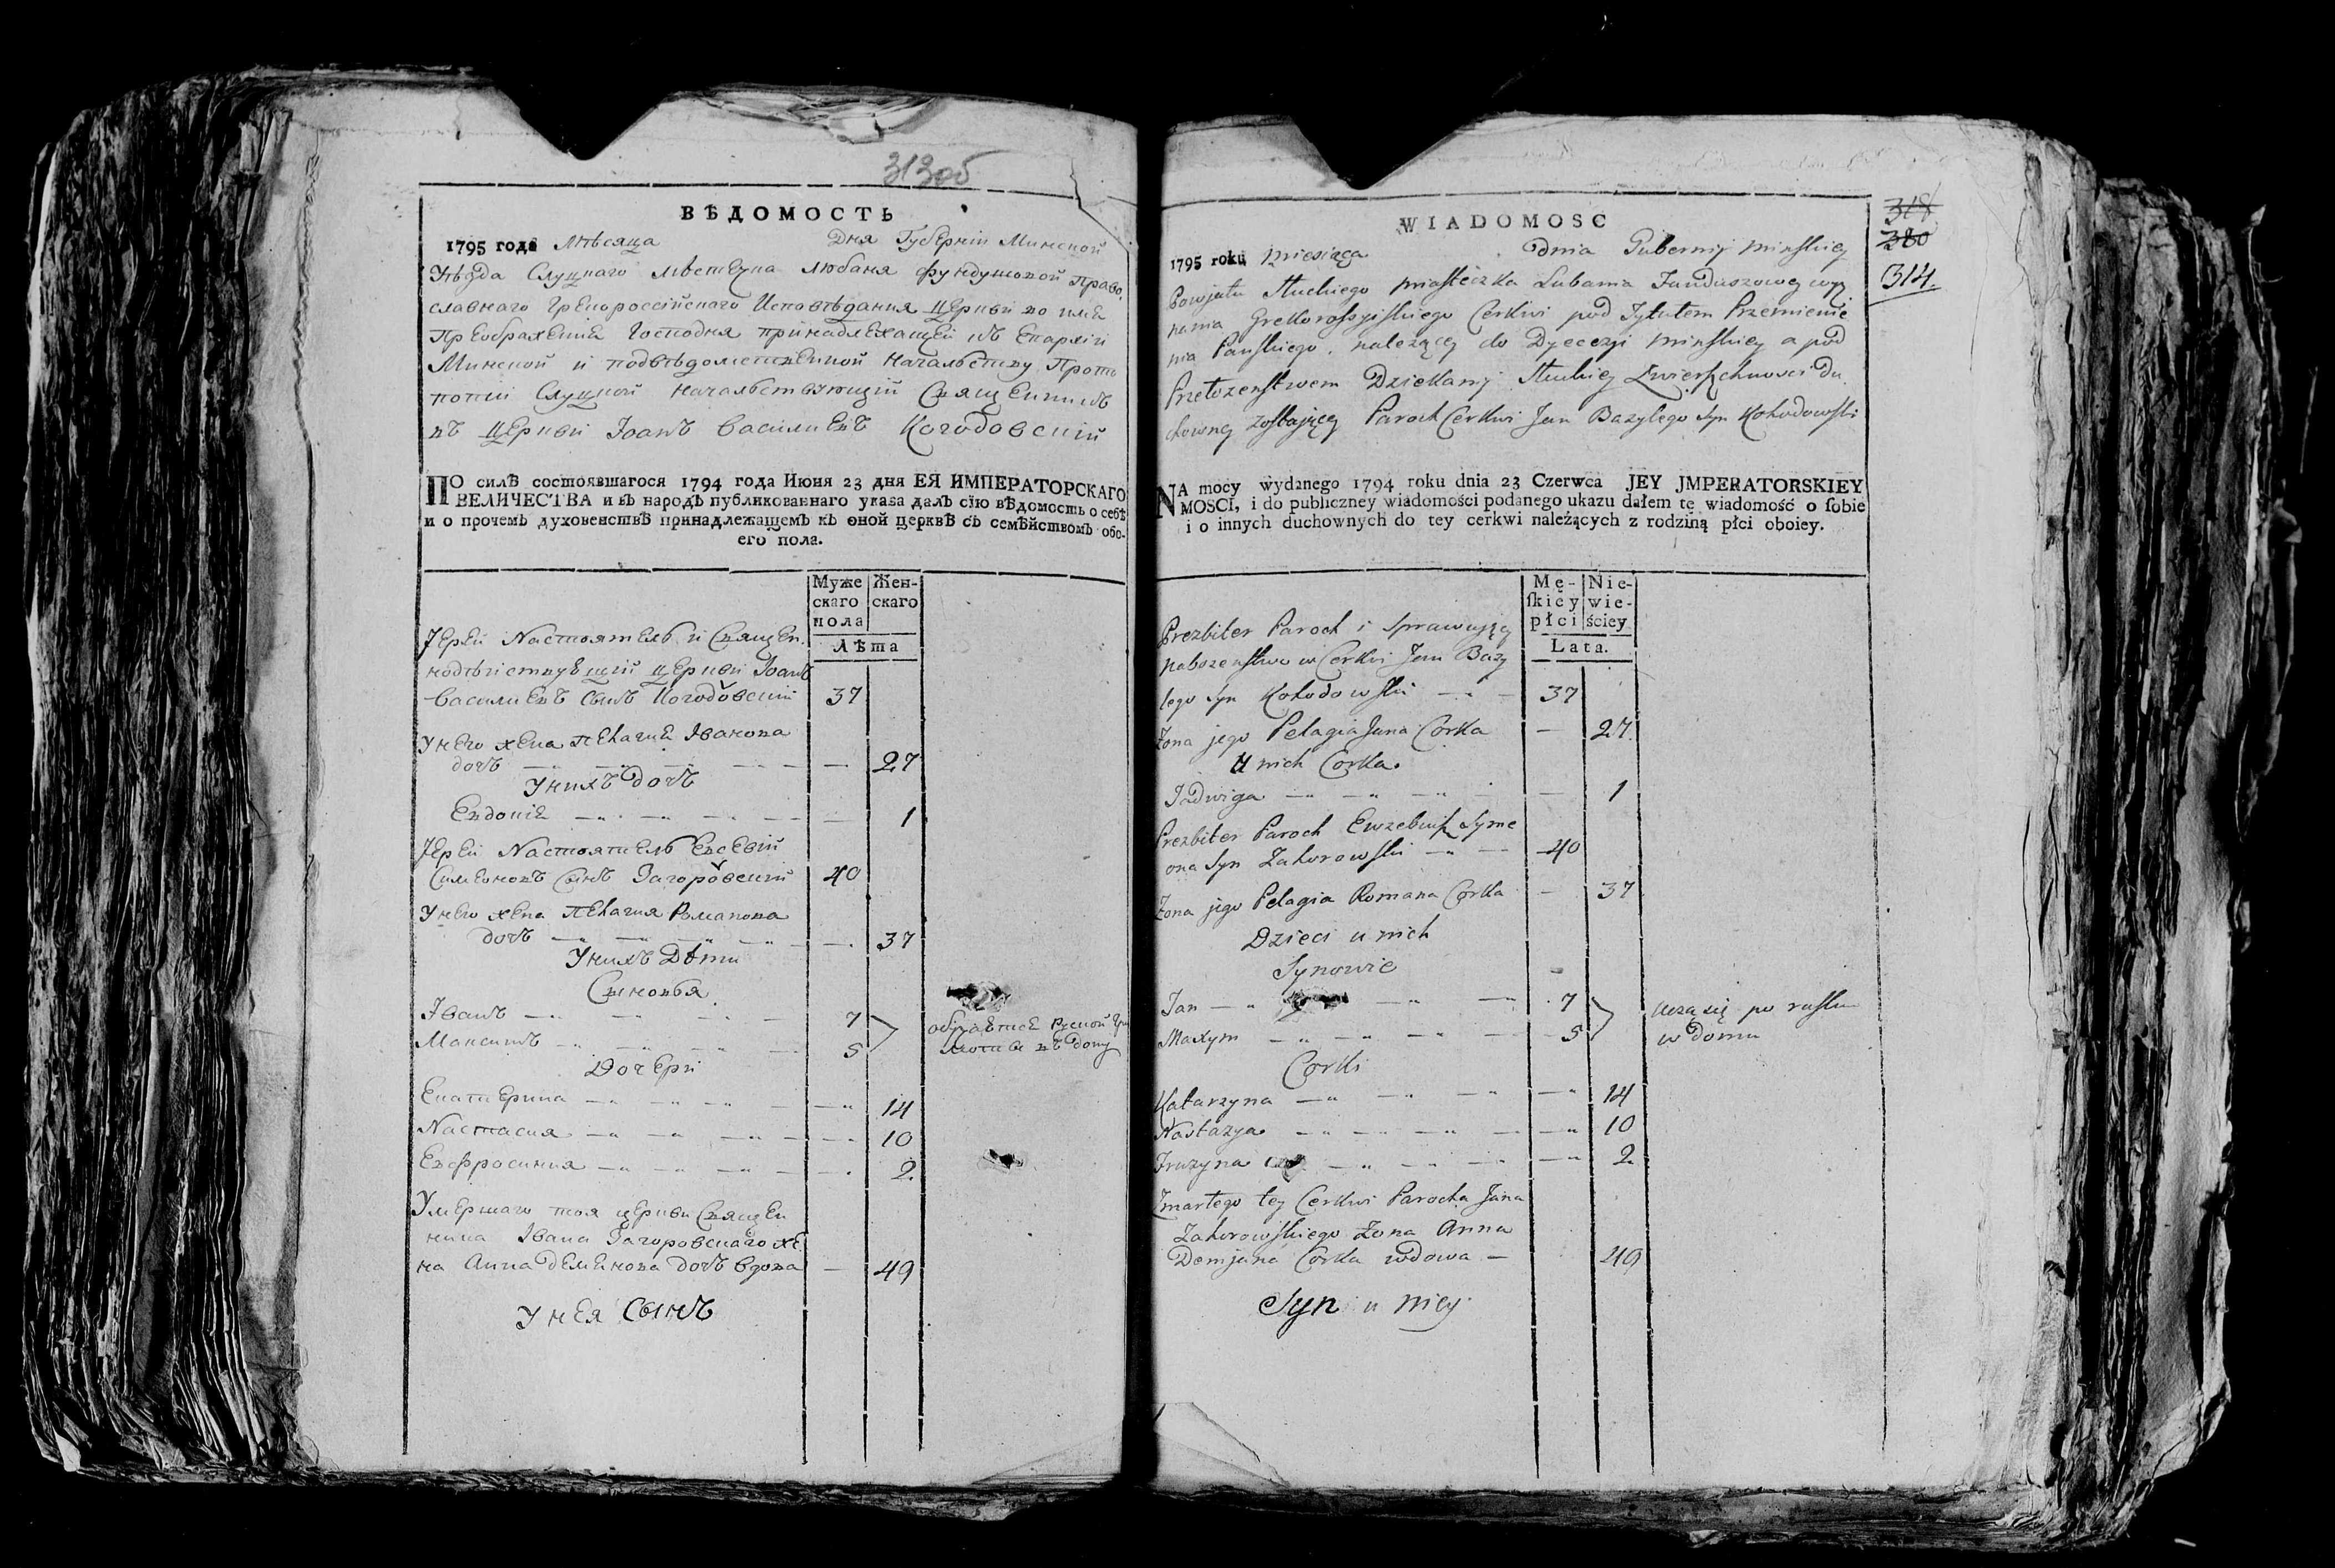 313об
ВѢДОМОСТЬ
1795 года Мѣсяца Дня Губерніи Минской
Уѣзда Слуцкаго мѣстечка Любаня фундушовой Право
славнаго Грекороссійскаго Исповѣданія церкви во имя
Преображения Господня принадлежащей къ Епархіи
Минской и подвѣдомственной Начальству Прото
попіи Слуцкой Начальствующій Священникъ
въ церкви Іоанъ Василиевъ Когодовскій
ПО силѣ состоявшагося 1794 года Июня 23 дня ЕЯ ИМПЕРАТОРСКАГО
ВЕЛИЧЕСТВА и въ народъ публикованнаго указа далъ сїю вѣдомость о себѣ
и о прочемъ духовенствѣ принадлежащемъ къ оной церквѣ съ семѣйствомъ обо-
его пола.
Муже Жен-
скаго скаго
пола
Лѣта
Іерей Настоятель и Священ
нодѣйствующій церкви Іоанъ
Василиевъ сынъ Когодовский 37
У него жена Пелагия Иванова
дочь 27
У нихъ дочь
Евдокія 1
Іерей Настоятель Евсевій
Симеоновъ Сынъ Загоровский 40
У него жена Пелагия Романова
дочь 37
У нихъ Дѣти
Сыновья
Іванъ 7
Максимъ 5
обучаются Руской Гра
моты въ дому
Дочери
Екатерина 14
Настасия 10
Евфросиния 2
Умершаго тоя церкви Священ
ника Ивана Загоровскаго же
на Анна Деменова дочь вдова 49
У нея Сынъ
318
380
314.
WIADOMOSC
1795 roku miesiąca dnia Gubernij Minskiey
Powjatu Słuckiego miasteczka Lubania Funduszowey wyz
nania Grekorossyiskiego Cerkwi pod Tytułem Przemienie
nia Pańskiego, należącey do Dyecezyi Minskiey a pod
Przełożenstwem Dziekanij Słuckiey Zwierzchnosci Du
chowney zostającey Paroch Cerkwi Jan Bazylego syn Kohodowski
NA mocy wydanego 1794 roku dnia 23 Czerwca JEY JMPERATORSKIEY
MOSCI, i do publiczney wiadomości podanego ukazu dałem tę wiadomość o sobie
i o innych duchownych do tey cerkwi należących z rodziną płci oboiey.
Mę- Nie-
skiey wie-
płci ściey
Lata.
Prezbiter Paroch i sprawujący
nabozenstwo w Cerkwi Jan Bazy
lego syn Kohodowski 37
Żona jego Pelagia Jana Corka 27.
U nich Corka
Jadwiga 1
Prezbiter Paroch Euzebiusz Syme
ona Syn Zahorowski 40
Żona jego Pelagia Romana Corka 37
Dzieci u nich
Synowie
Jan 7
Maxym 5
uczą się po rusku
w Domu
Corki
Katarzyna 14
Nastazya 10
Fruzyna 2
Zmarłego tey Cerkwi Parocha Jana
Zahorowskiego Żona Anna
Demjana Corka wdowa 49
Syn u niey